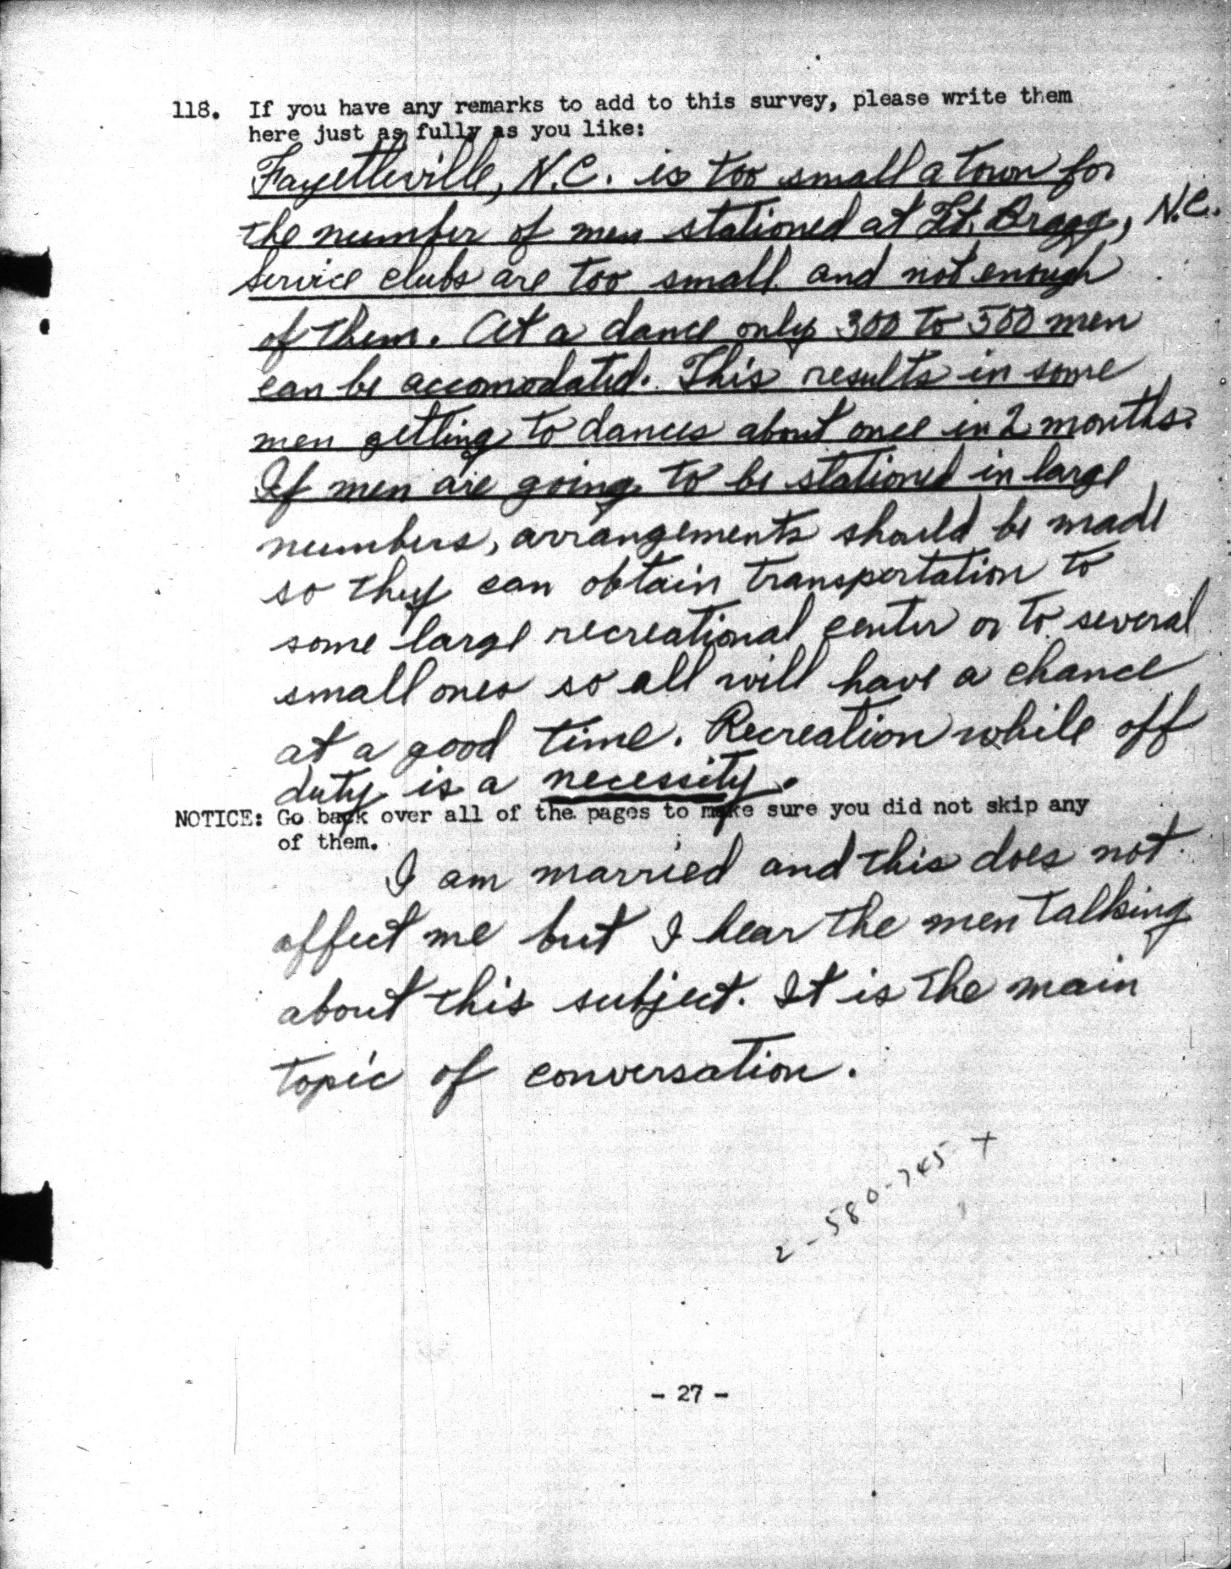 118. If you have any remarks to add to this survey, please write them
here just as fully as you like:
Fayetteville, N.C. is too small a town for
the number of men stationed at Ft. Bragg, N.C.
Service clubs are too small and not enough
of them. At a dance only 300 to 500 men
can be accomodated. This results in some
men getting to dances about once in 2 months.
If men are going to be stationed in large
numbers, arrangements should be made
so they can obtain transportation to
some large recreational center or to several
small ones so all will have a chance
at a good time. Recreation while off
duty is a necessity.
NOTICE: Go back over all of the pages to make sure you did not skip any
of them.
I am married and this does not
affect me but I hear the men talking
about this subject. It is the main
topic of conversation.
2-580-745 +
- 27 -